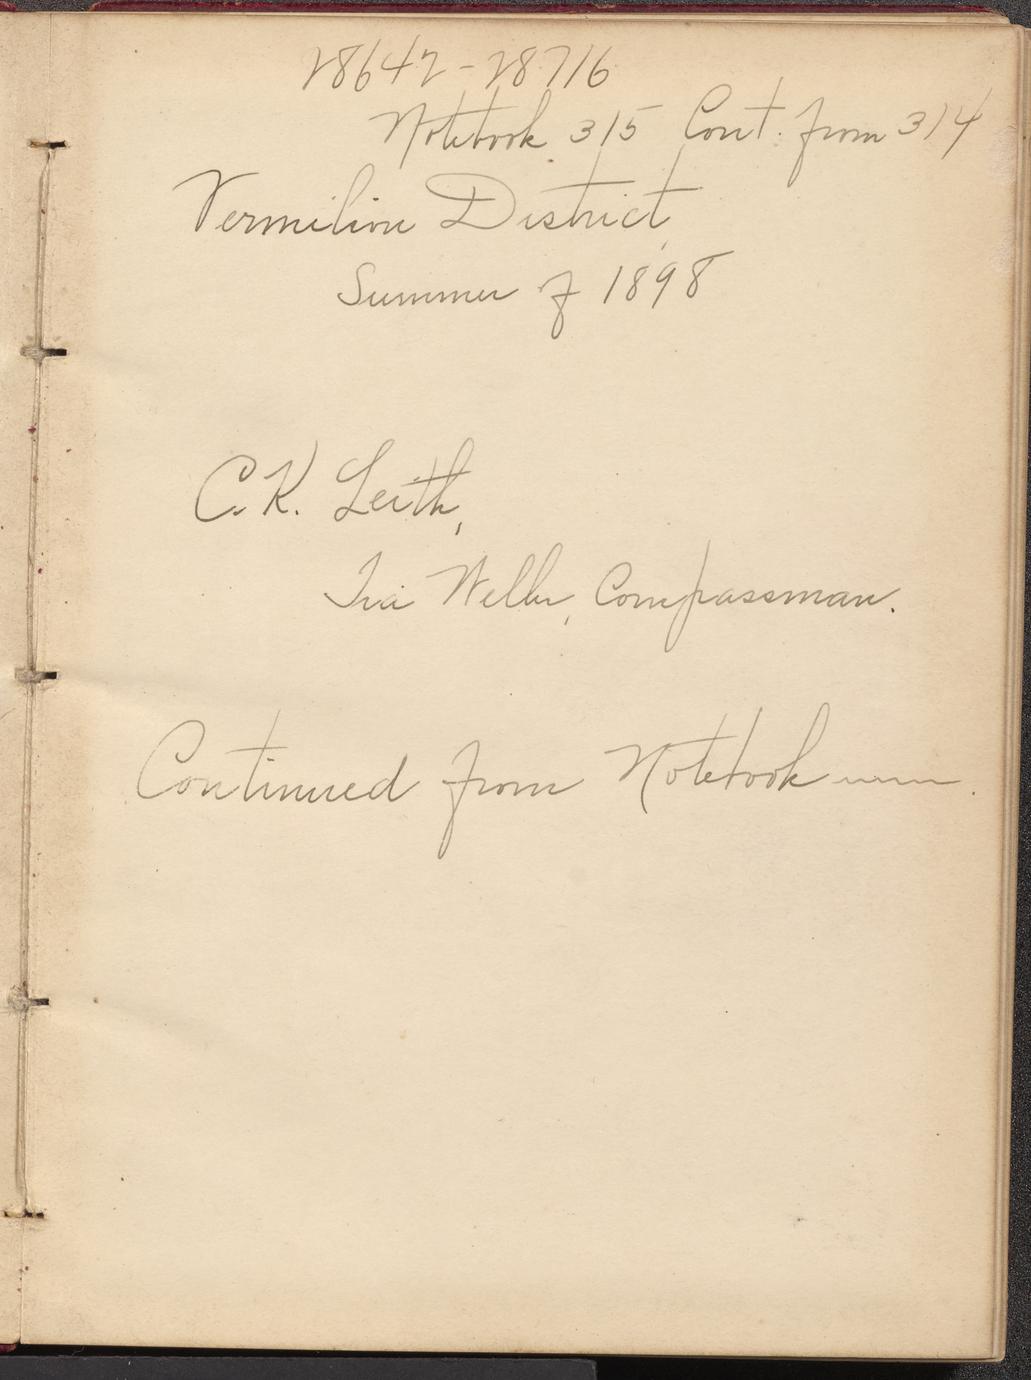 28642-28716
Notebook 315 Cont. from 314
Vermilion District,
Summer of 1898
C.K. Leith,
Ira Compassman.
Continued from Notebook